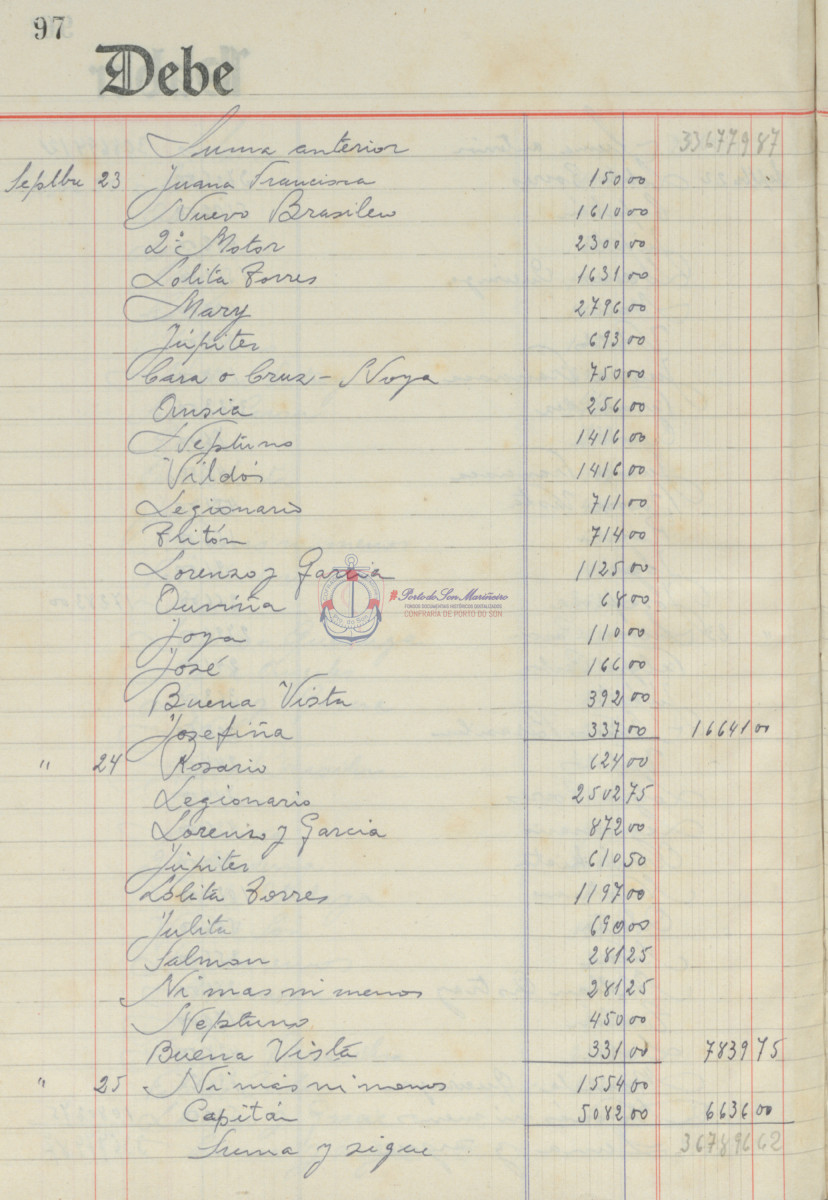 97
Debe
Suma anterior 336779 87
Septbre 23 Juana Francisca 150 00
Nuevo Brasileño 1610 00
2º Motor 2300 00
Lolita Torres 1631 00
Mary 2796 00
Júpiter 693 00
Cara o Cruz - Noya 750 00
256 00
Neptuno 1416 00
Vildós 1416 00
Legionario 711 00
Tritón 714 00
Lorenzo y García 1125 00
68 00
Joya 110 00
José 166 00
Buena Vista 392 00
Josefiña 337 00 16641 00
" 24 Rosario 624 00
Legionario 2502 75
Lorenzo y García 872 00
Júpiter 610 50
Lolita Torres 1197 00
Julita 690 00
Salmon 281 25
Ni mas ni menos 281 25
Neptuno 450 00
Buena Vista 331 00 7839 75
" 25 Ni más ni menos 1554 00
Capitán 5082 00 6636 00
Suma y sigue 367896 62
Porto do Son Mariñeiro
FONDOS DOCUMENTAIS HISTÓRICOS DIXITALIZADOS
CONFRARÍA DE PORTO DO SON